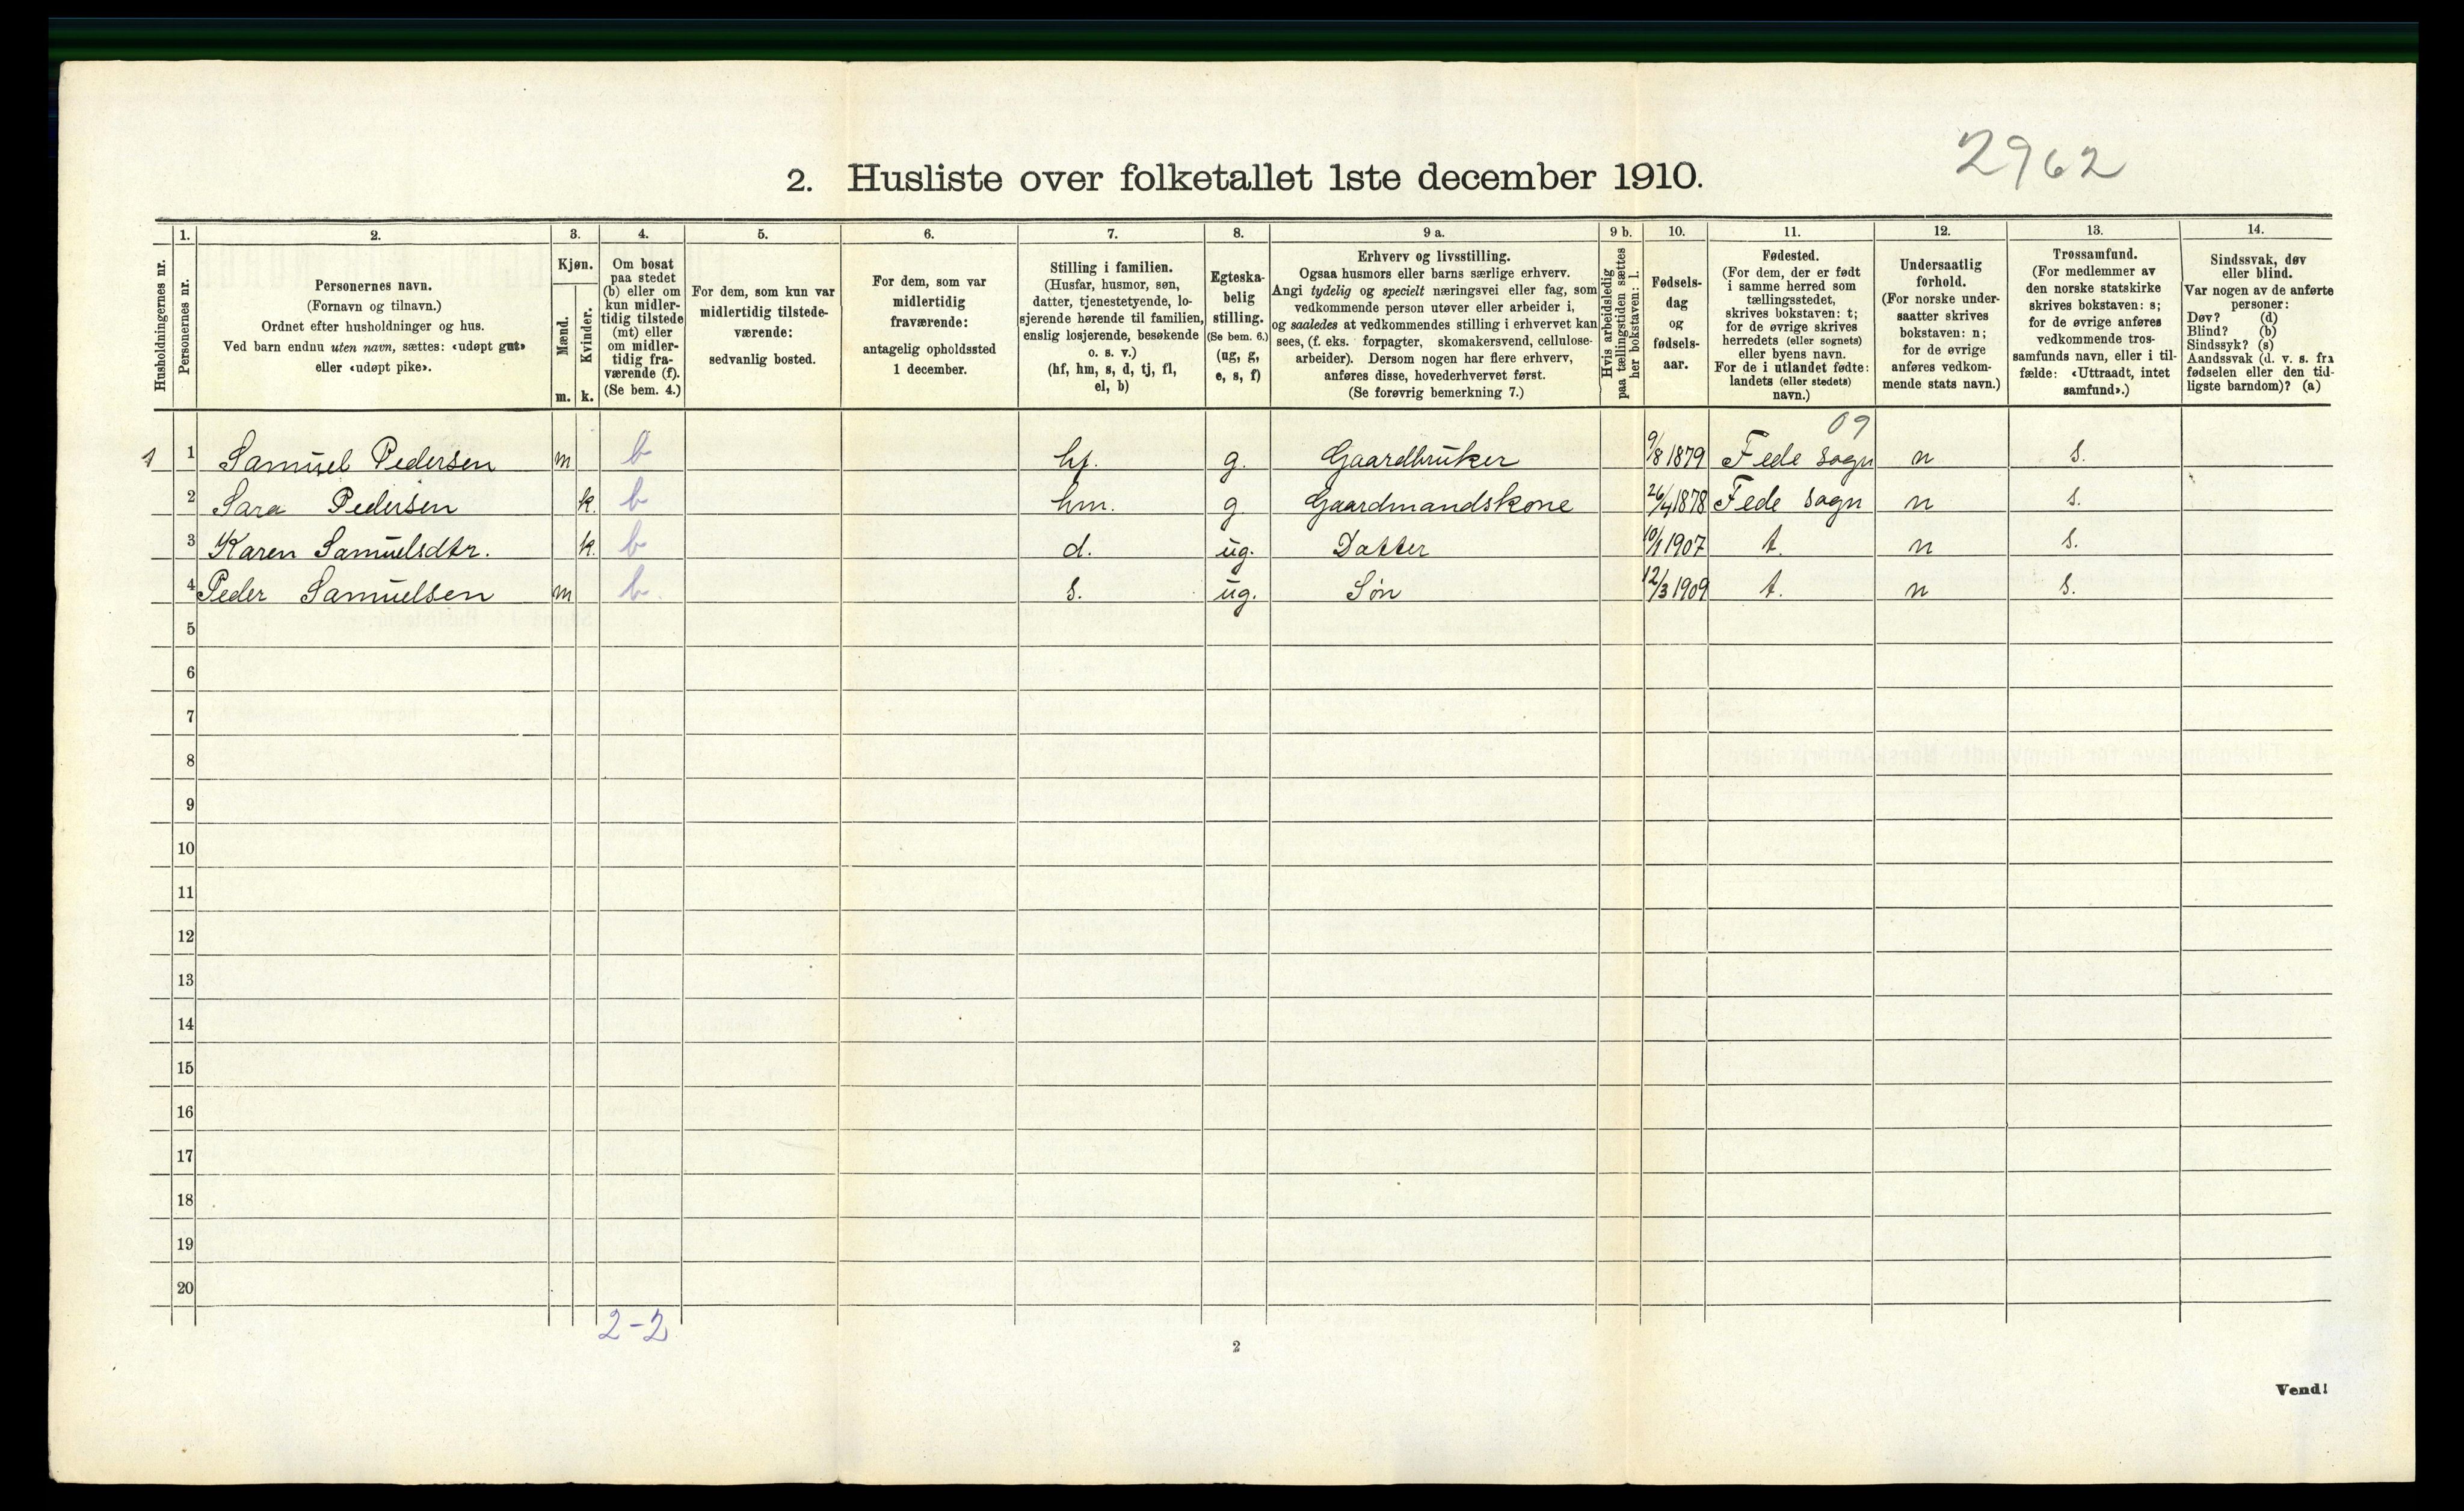 2962
2. Husliste over folketallet 1ste december 1910.
1. 2. 3. 4. 5. 6. 7. 8. 9 a. 9 b. 10. 11. 12. 13. 14.
Husholdningernes nr.
Personernes nr.
Personernes navn.
(Fornavn og tilnavn.)
Ordnet efter husholdninger og hus.
Ved barn endnu uten navn, sættes: «udøpt gut»
eller «udøpt pike».
Kjøn.
Mænd.
Kvinder.
m. k.
Om bosat
paa stedet
(b) eller om
kun midler-
tidig tilstede
(mt) eller
om midler-
tidig fra-
værende (f).
(Se bem. 4.)
For dem, som kun var
midlertidig tilstede-
værende:
sedvanlig bosted.
For dem, som var
midlertidig
fraværende:
antagelig opholdssted
1 december.
Stilling i familien.
(Husfar, husmor, søn,
datter, tjenestetyende, lo-
sjerende hørende til familien,
enslig losjerende, besøkende
o. s. v.)
(hf, hm, s, d, tj, fl,
el, b)
Egteska-
belig
stilling.
(Se bem. 6.)
(ug, g,
e, s, f)
Erhverv og livsstilling.
Ogsaa husmors eller barns særlige erhverv.
Angi tydelig og specielt næringsvei eller fag, som
vedkommende person utøver eller arbeider i,
og saaledes at vedkommendes stilling i erhvervet kan
sees, (f. eks. forpagter, skomakersvend, cellulose-
arbeider). Dersom nogen har flere erhverv,
anføres disse, hovederhvervet først.
(Se forøvrig bemerkning 7.)
Hvis arbeidsledig
paa tællingstiden sættes
her bokstaven: l.
Fødsels-
dag
og
fødsels-
aar.
Fødested.
(For dem, der er født
i samme herred som
tællingsstedet,
skrives bokstaven: t;
for de øvrige skrives
herredets (eller sognets)
eller byens navn.
For de i utlandet fødte:
landets (eller stedets)
navn.)
Undersaatlig
forhold.
(For norske under-
saatter skrives
bokstaven: n;
for de øvrige
anføres vedkom-
mende stats navn.)
Trossamfund.
(For medlemmer av
den norske statskirke
skrives bokstaven: s;
for de øvrige anføres
vedkommende tros-
samfunds navn, eller i til-
fælde: «Uttraadt, intet
samfund».)
Sindssvak, døv
eller blind.
Var nogen av de anførte
personer:
Døv? (d)
Blind? (b)
Sindssyk? (s)
Aandssvak (d. v. s. fra
fødselen eller den tid-
ligste barndom)? (a)
09
1 1 Samuel Pedersen m b hf. g. Gaardbruker 9/8 1879 Fede sogn n s.
2 Sara Pedersen k. b hm. g. Gaardmandskone 26/4 1878 Fede sogn n s.
3 Karen Samuelsdtr. k. b d. ug. Datter 10/1 1907 t. n s.
4 Peder Samuelsen m b s. ug. Søn 12/3 1909 t. n s.
5
6
7
8
9
10
11
12
13
14
15
16
17
18
19
20
2-2
2
Vend!